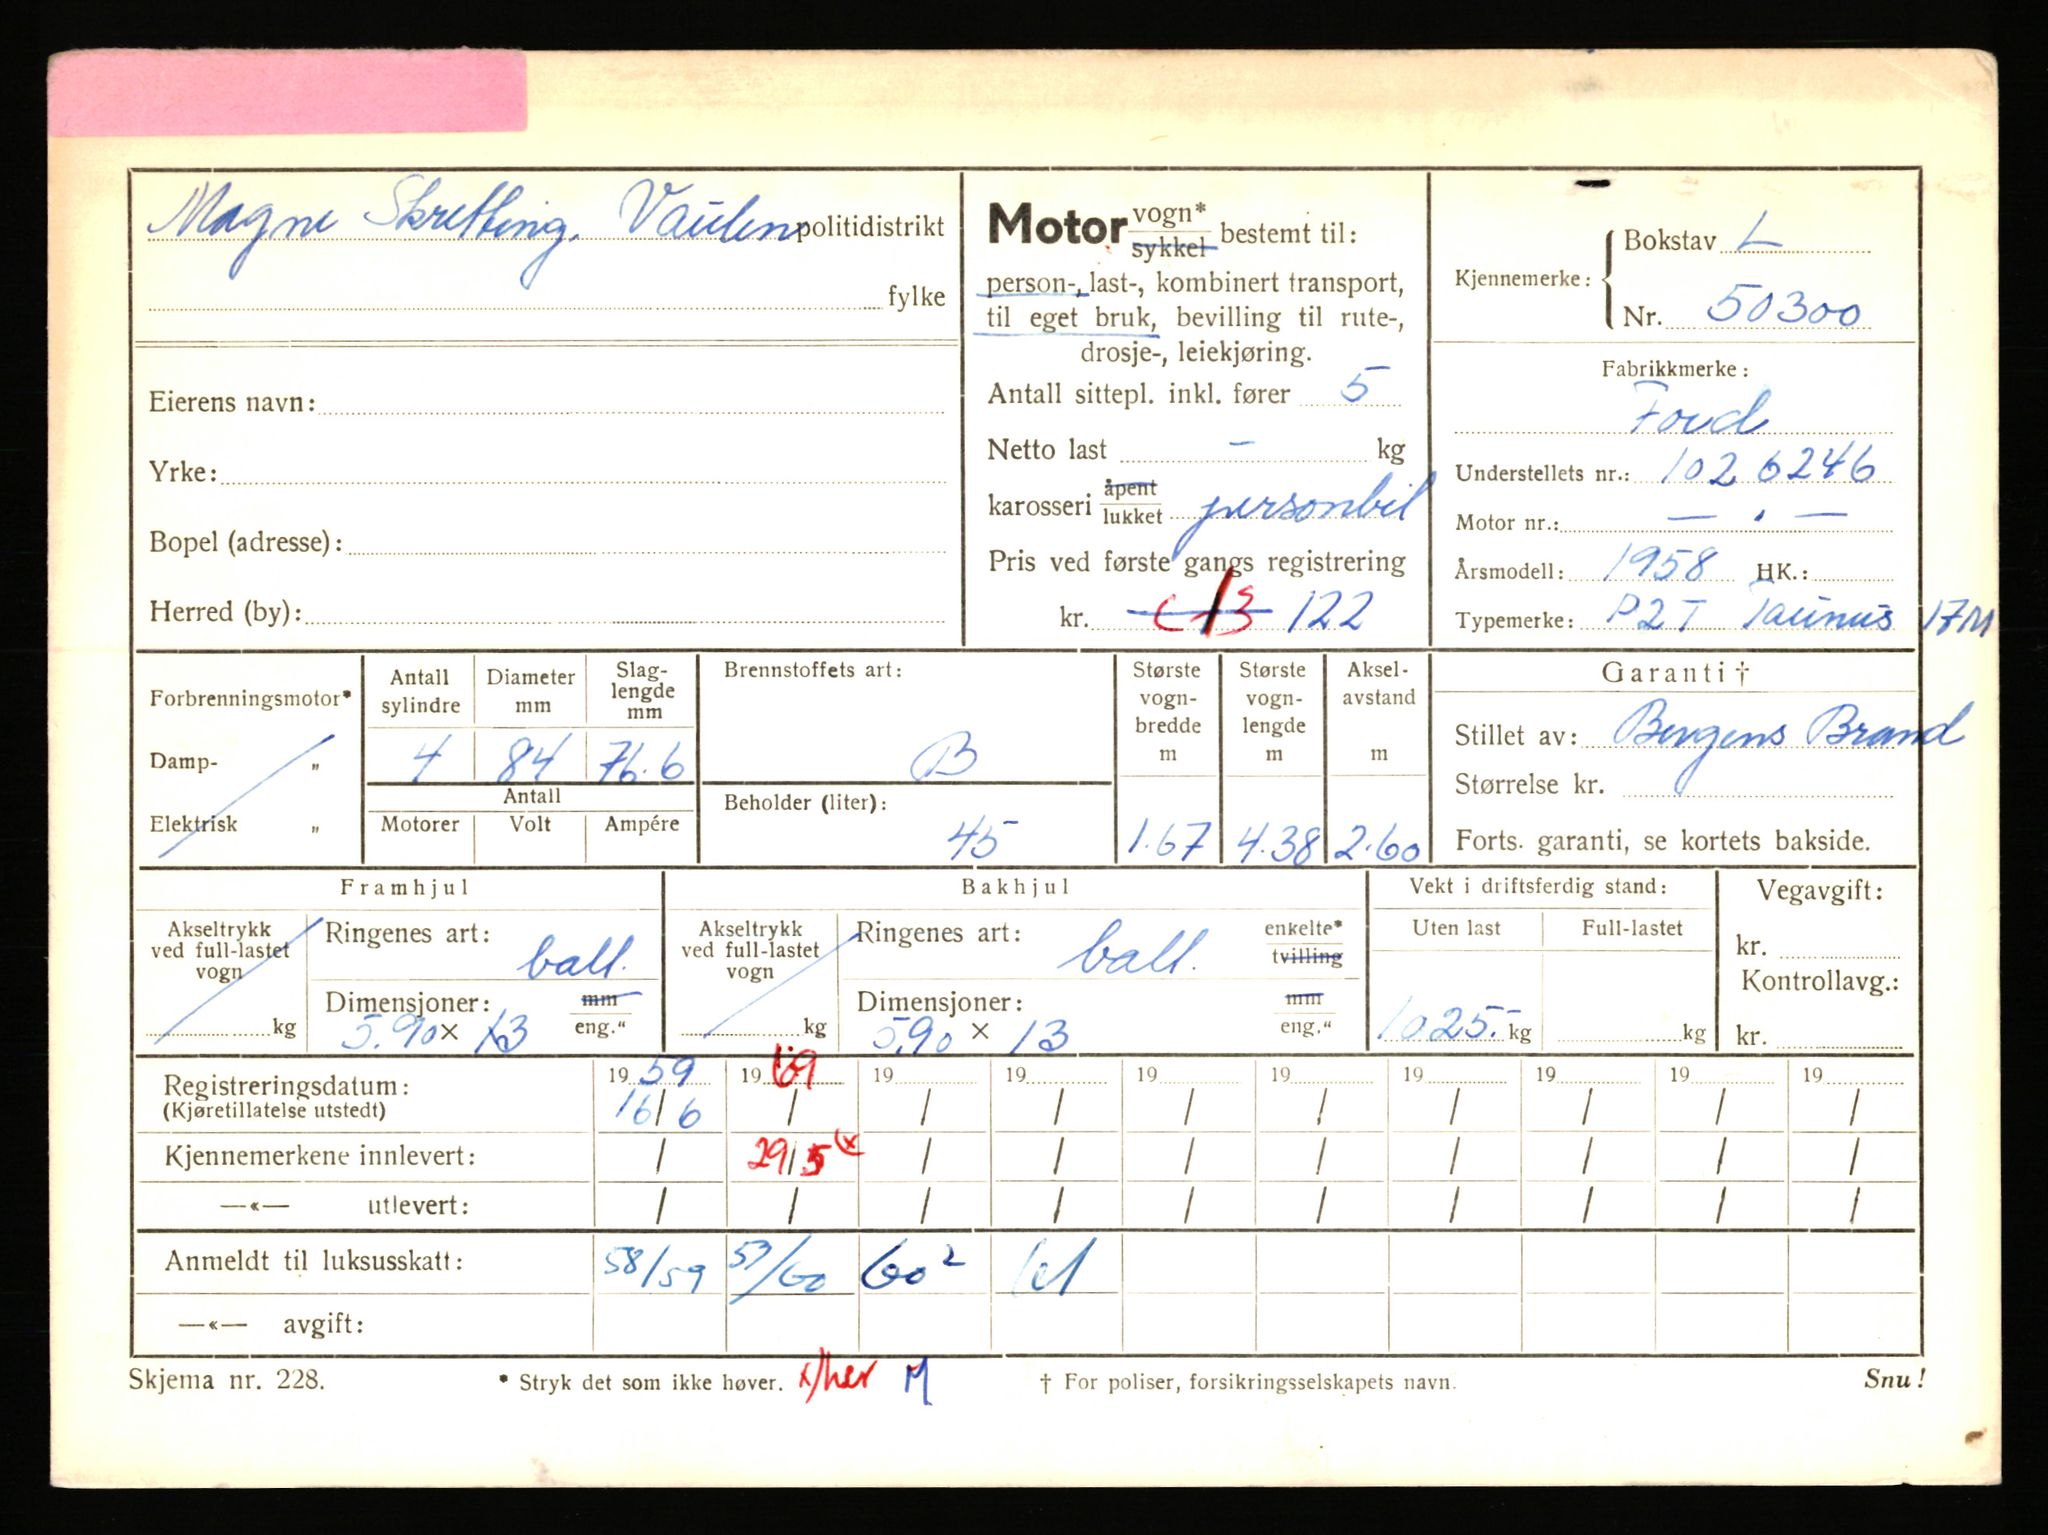 Magne Skretting. Vaulen politidistrikt
fylke
Eierens navn:
Yrke:
Bopel (adresse):
Herred (by):
Motor vogn* sykkel bestemt til:
person-, last-, kombinert transport,
til eget bruk, bevilling til rute-,
drosje-, leiekjøring.
Antall sittepl. inkl. fører 5
Netto last - kg
karosseri åpent lukket personbil
Pris ved første gangs registrering
kr. 122
Kjennemerke: Bokstav L
Nr. 50300
Fabrikkmerke:
Ford
Understellets nr.: 1026246
Motor nr.: — . —
Årsmodell: 1958 HK.:
Typemerke: P2T Taunus 17M
Forbrenningsmotor*
Damp- "
Elektrisk "
Antall sylindre
Diameter mm
Slaglengde mm
4 84 76.6
Antall
Motorer Volt Ampére
Brennstoffets art:
B
Beholder (liter):
45
Største vognbredde m
1.67
Største vognlengde m
4.38
Akselavstand m
2.60
Garanti †
Stillet av: Bergens Brand
Størrelse kr.
Forts. garanti, se kortets bakside.
Framhjul
Akseltrykk ved full-lastet vogn
kg
Ringenes art:
ball.
Dimensjoner: mm eng."
5.90 x 13
Bakhjul
Akseltrykk ved full-lastet vogn
kg
Ringenes art: enkelte* tvilling
ball.
Dimensjoner: mm eng."
5.90 x 13
Vekt i driftsferdig stand:
Uten last Full-lastet
1025.- kg kg
Vegavgift:
kr.
Kontrollavg.:
kr.
Registreringsdatum: 19 59 19 69 19 19 19 19 19 19 19 19
(Kjøretillatelse utstedt) 16/6 / / / / / / / / /
Kjennemerkene innlevert: / 29/5 (x / / / / / / / /
—«— utlevert: / / / / / / / / / /
Anmeldt til luksusskatt: 58/59 59/60 60² 61
—«— avgift:
Skjema nr. 228. * Stryk det som ikke høver. x) her M † For poliser, forsikringsselskapets navn. Snu!